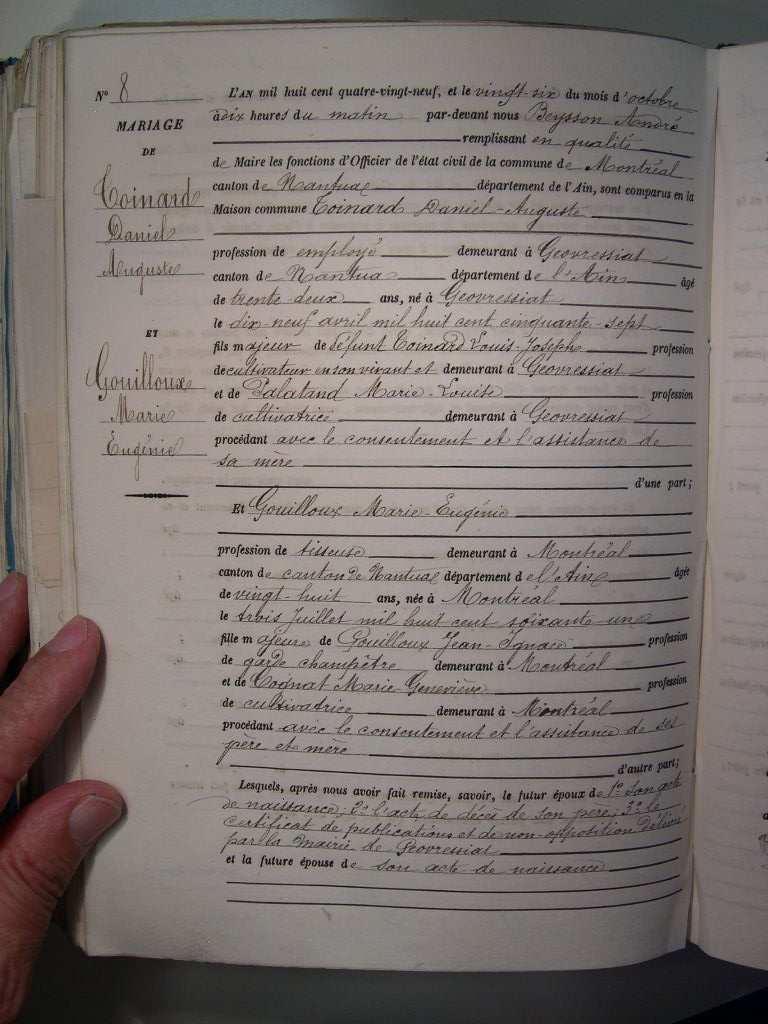 N° 8
MARIAGE
DE
Toinard
Daniel
Auguste
ET
Gouilloux
Marie
Eugénie
L'AN mil huit cent quatre-vingt-neuf, et le vingt-six du mois d'octobre
à dix heures du matin par-devant nous Beysson André
remplissant en qualité
de Maire les fonctions d'Officier de l'état civil de la commune de Montréal
canton de Nantua département de l'Ain, sont comparus en la
Maison commune Toinard Daniel-Auguste
profession de employé demeurant à Geovressiat
canton de Nantua département de l'Ain âgé
de trente-deux ans, né à Geovressiat
le dix-neuf avril mil huit cent cinquante-sept
fils majeur de défunt Toinard Louis-Joseph profession
de cultivateur en son vivant et demeurant à Geovressiat
et de Palatand Marie-Louise profession
de cultivatrice demeurant à Geovressiat
procédant avec le consentement et l'assistance de
sa mère
d'une part;
Et Gouilloux Marie-Eugénie
profession de tisseuse demeurant à Montréal
canton de canton de Nantua département de l'Ain âgée
de vingt-huit ans, née à Montréal
le trois Juillet mil huit cent soixante un
fille majeure de Gouilloux Jean-Ignace profession
de garde champêtre demeurant à Montréal
et de Cognat Marie-Geneviève profession
de cultivatrice demeurant à Montréal
procédant avec le consentement et l'assistance de ses
père et mère
d'autre part;
Lesquels, après nous avoir fait remise, savoir, le futur époux de 1° Son acte
de naissance; 2° l'acte de décès de son père; 3° le
certificat de publications et de non-opposition délivré
par la mairie de Geovressiat
et la future épouse de son acte de naissance